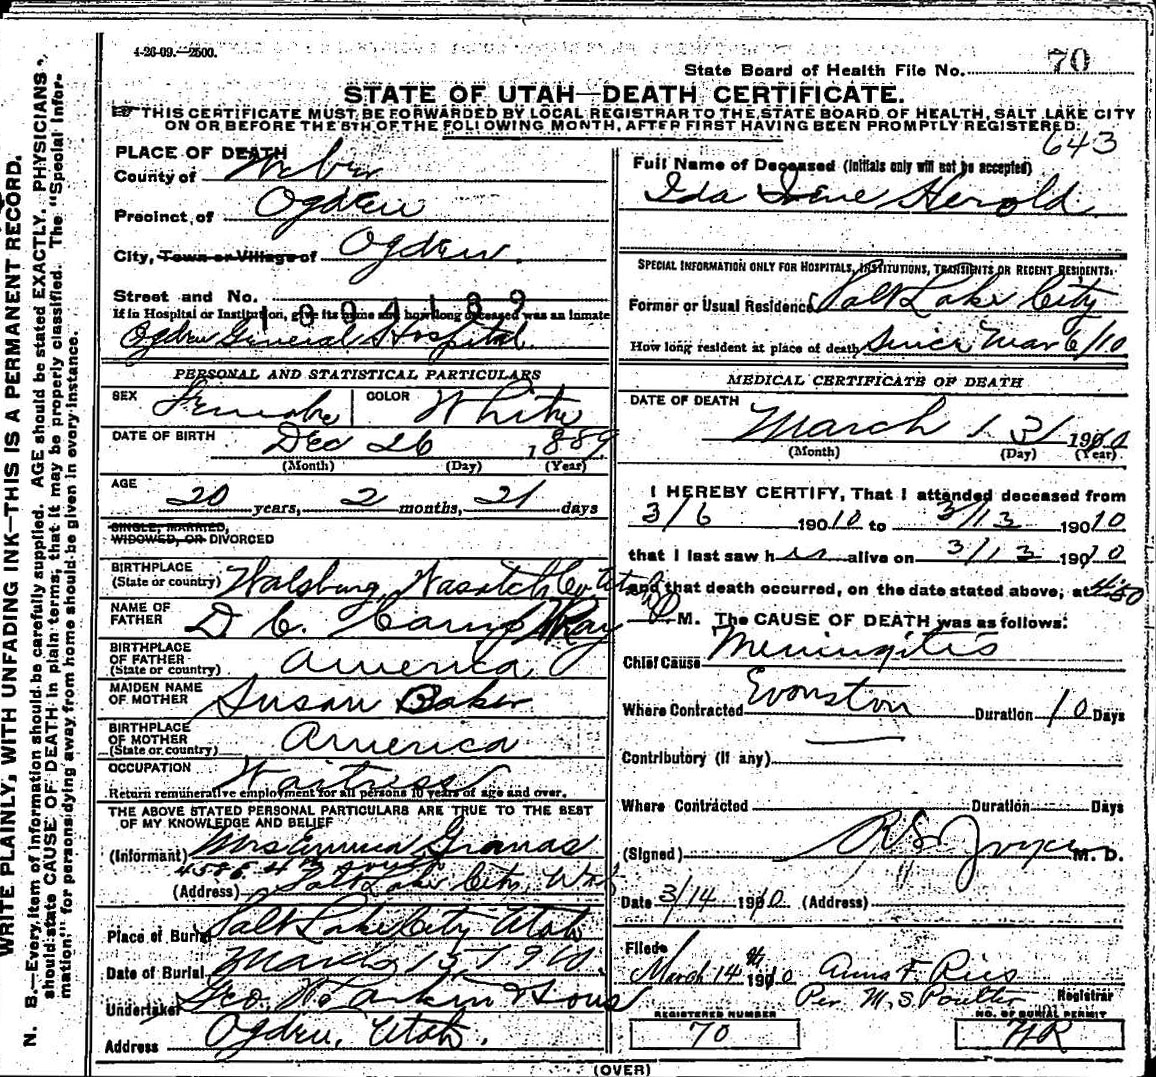 4-26-09.—2500.
State Board of Health File No. 70
STATE OF UTAH—DEATH CERTIFICATE.
THIS CERTIFICATE MUST BE FORWARDED BY LOCAL REGISTRAR TO THE STATE BOARD OF HEALTH, SALT LAKE CITY
ON OR BEFORE THE 5TH OF THE FOLLOWING MONTH, AFTER FIRST HAVING BEEN PROMPTLY REGISTERED.
643
PLACE OF DEATH
County of Weber
Precinct of Ogden
City, Town or Village of Ogden.
Street and No.
1004189
If in Hospital or Institution, give its name and how long deceased was an inmate
Ogden General Hospital.
Full Name of Deceased (Initials only will not be accepted)
Ida Irene Herold
SPECIAL INFORMATION ONLY FOR HOSPITALS, INSTITUTIONS, TRANSIENTS OR RECENT RESIDENTS.
Former or Usual Residence Salt Lake City
How long resident at place of death Since Mar 6/10
PERSONAL AND STATISTICAL PARTICULARS
SEX Female COLOR White
DATE OF BIRTH Dec 26 1889
(Month) (Day) (Year)
AGE
20 years, 2 months, 21 days
SINGLE, MARRIED,
WIDOWED, OR DIVORCED
BIRTHPLACE
(State or country) Walsburg, Wasatch Co Utah
NAME OF
FATHER D C.
BIRTHPLACE
OF FATHER
(State or country) America
MAIDEN NAME
OF MOTHER Susan Baker
BIRTHPLACE
OF MOTHER
(State or country) America
OCCUPATION Waitress
Return remunerative employment for all persons 10 years of age and over.
THE ABOVE STATED PERSONAL PARTICULARS ARE TRUE TO THE BEST
OF MY KNOWLEDGE AND BELIEF
(Informant) Mrs Emma
(Address) Salt Lake City,
Place of Burial Salt Lake City Utah
Date of Burial March 15 1910.
Undertaker Geo. W. Larkin & Sons
Address Ogden, Utah.
MEDICAL CERTIFICATE OF DEATH
DATE OF DEATH
March 13 1910
(Month) (Day) (Year)
I HEREBY CERTIFY, That I attended deceased from
3/6 190 10 to 3/13 190 10
that I last saw her alive on 3/13 190 10
and that death occurred, on the date stated above, at 4:50
M. The CAUSE OF DEATH was as follows:
Chief Cause Meningitis
Where Contracted Evanston Duration 10 Days
Contributory (if any)
Where Contracted Duration Days
(Signed) M. D.
Date 3/14 1910 (Address)
Filed
March 14th 1910 Anna F. Ries
Per. M. S. Poulter Registrar
REGISTERED NUMBER
70
NO. OF BURIAL PERMIT
HR
(OVER)
WRITE PLAINLY, WITH UNFADING INK—THIS IS A PERMANENT RECORD.
N. B.—Every item of information should be carefully supplied. AGE should be stated EXACTLY. PHYSICIANS
should state CAUSE OF DEATH in plain terms, that it may be properly classified. The "Special Infor-
mation" for persons dying away from home should be given in every instance.